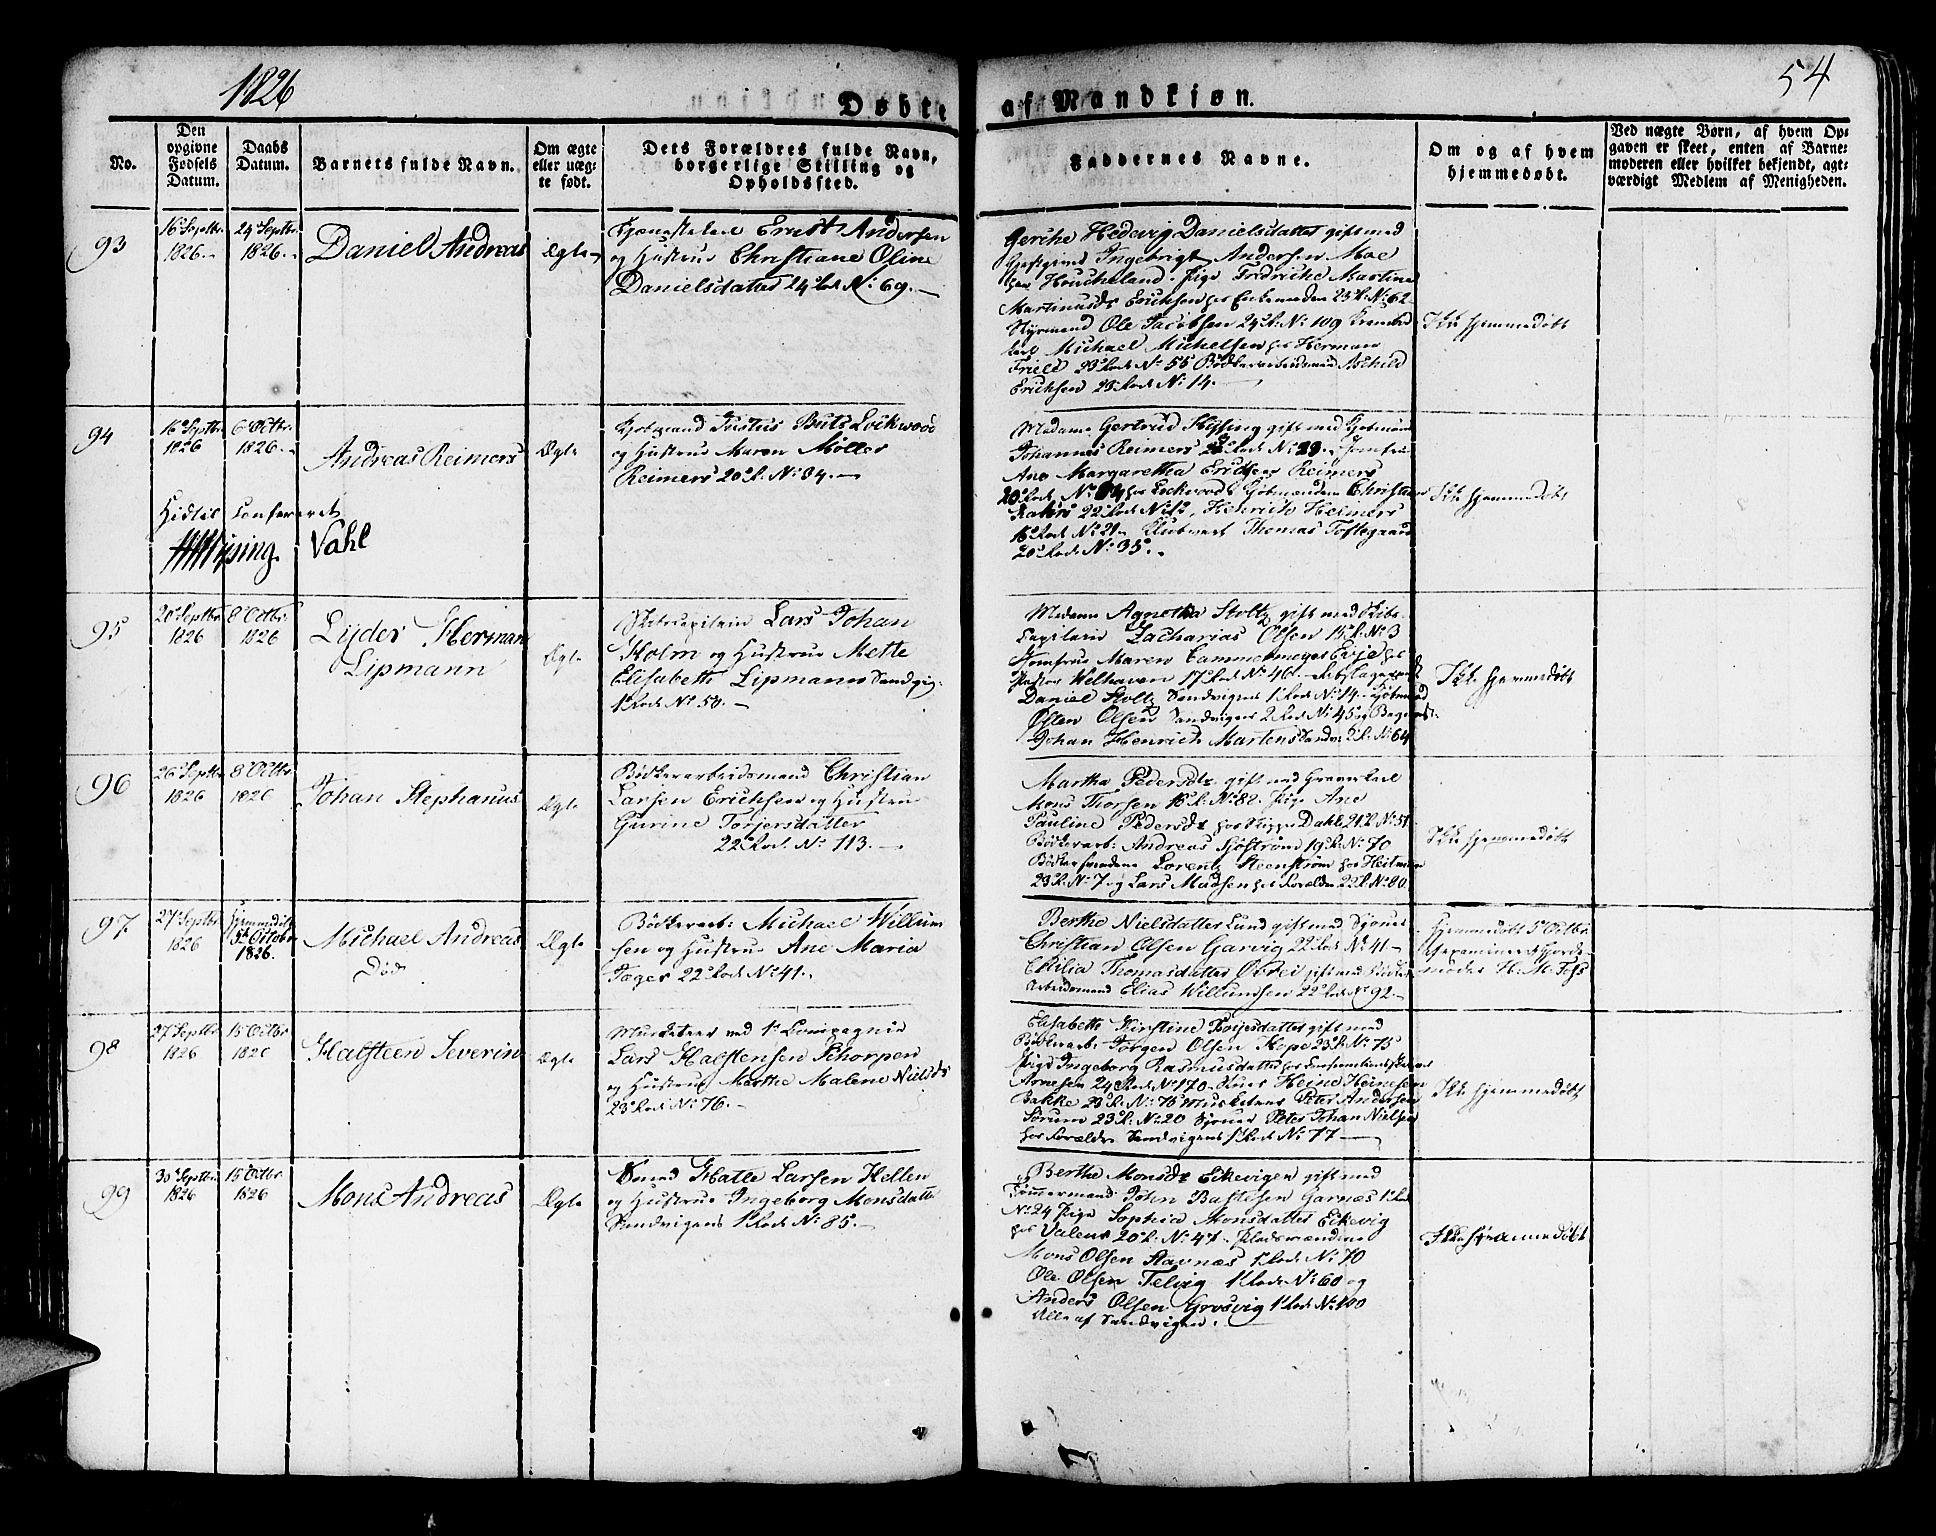 1826
54
Døbte af Mandkjøn.
No.
Den opgivne Fødsels Datum.
Daabs Datum.
Barnets fulde Navn.
Om ægte eller uægte født.
Dets Forældres fulde Navn, borgerlige Stilling og Opholdssted.
Faddernes Navne.
Om og af hvem hjemmedøbt.
Ved uægte Børn, af hvem Opgaven er skeet, enten af Barnemoderen eller hvilket bekjendt, agtværdigt Medlem af Menigheden.
93
16 Septbr 1826
24 Septbr 1826
Daniel Andreas
Ægte
Tjenestekarl Ernst Andersen
og Hustrue Christiane Oline
Danielsdatter 24 Rode No. 69.
Gerche Hedevig Danielsdatter gift med
Gjestgiver Ingebrigt Andersen Moe
Pige Fredriche Martine
Martinusdr Erichsen
Styrmand Ole Jacobsen 24 R. No 109
Karl Michael Michelsen hos Herman
Friele 23 Rode No. 55 Bødkerarbeidsmand Aschild
Erichsen 23 Rode No. 14.
Ikke hjemmedøbt
94
16 Septbr 1826
6 Octbr 1826
Andreas Reimers
Ægte
Justus Buts Lockwood
og Hustrue Maren Møller
Reimers 20 R. No. 34.
Madame Gertrud gift med Kjøbmand
Johannes Reimers Rode No. Jomfru
Ane Margaretha Reimers
20 Rode No. hos Lockwood Kjøbmændene Christian
22 Rode No 12, Henrich Reimers
16 Rode No. 21 Thomas Toftegaard
20 Rode No. 35.
Ikke hjemmedøbt
Hidtil Confereret
Vahl
95
20 Septbr 1826
8 Octbr 1826
Lyder Herman
Lipmann
Ægte
Skibscapitain Lars Johan
Holm og Hustrue Mette
Elisabeth Lipmann Sandvig:
1 Rode No. 50.
Madame Agnetha Stoltz gift med Skibs-
Capitain Zacharias Olsen 15 R. No 3
Jomfrue Maren Cammermeyer Evje hos
Pastor Welhaven 17 Rode No. 46
Daniel Stoltz Sandvigens 1 Rode No. 14 Kjøbmand
Østen Olsen Sandvigen 2 Rode No. 45 og
Johan Henrich Martens Sandv: 2 R. No. 64
Ikke hjemmedøbt
96
26 Septbr 1826
8 Octbr 1826
Johan Stephanus
Ægte
Bødkerarbeidsmand Christian
Larsen Erichsen og Hustrue
Gurine Torjersdatter
22 Rode No. 113.
Martha Pedersdr gift med Graverkarl
Mons Thorsen 16 R. No. 82. Pige Ane
Pauline Pedersdr hos Skipper Dahl 21 R. No 51
Bødkerarb: Andreas Sjøstrøm 19 R. No. 70
Bødkersvendene Lorentz Steenstrøm hos Heitman
23 R. No. 7 og Lars Madsen hos Forældre 22 R. No 80
Ikke hjemmedøbt
97
27 Septbr 1826
hjemmedøbt 5te October 1826.
Michael Andreas
Død
Ægte
Bødkerarb: Michael Willum
sen og Hustrue Ane Maria
Jager 22 Rode No. 41.
Berthe Nielsdatter Lund gift med
Christian Olsen Garvig 22 Rode No. 41
Cecilia Thomasdatter gift med Bødker
Arbeidsmand Elias Willumsen 22 Rode No 92.
Hjemmedøbt 5 Octbr
af examineret Gjorde-
moder H. M. Foss
98
27 Septbr 1826
15 Octbr 1826
Halsteen Severin
Ægte
Musketeer ved 1 Compagnie
Lars Halstensen Schorpen
og Hustrue Marthe Malene Nielsdr
23 Rode No. 76.
Elisabeth Kirstine gift med
Bødkerarb: Jørgen Olsen Hope 23 R. No 75
Pige Ingeborg Rasmusdatter hos
Arnesen 24 Rode No. 170. Heine Heinesen
Bakke 23 R. No. 76 Musketeer Peter Andersen
Sørum 23 R. No. 20 Peter Johan Nielsen
hos Forældre Sandvigens 1 Rode No. 77
Ikke hjemmedøbt
99
30 Septbr 1826
15 Octbr 1826
Mons Andreas
Ægte
Halle Larsen Hellen
og Hustrue Ingeborg Monsdatter
Sandvigens 1 Rode No. 85.
Berthe Monsdr Eckevigen gift med
Tømmermand John Bastesen Garnæs 1 Rode
No 24 Pige Sophia Monsdatter Eckevig
hos Valens 20 R. No. 47. Pladsmændene
Mons Olsen Stavnæs 1 Rode No. 70
Ole Olsen Telvig 1 Rode No. 60 og
Anders Olsen Grosvig 1 Rode No. 100
Alle af Sandvigen.
Ikke hjemmedøbt